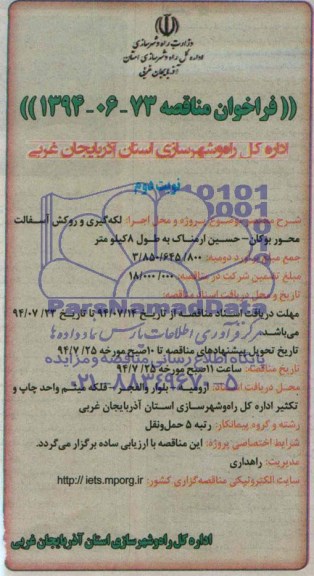 وزارت راه و شهرسازی
اداره کل راه و شهرسازی استان
آذربایجان غربی
(( فراخوان مناقصه ۷۳ - ۰۶ - ۱۳۹۴ ))
اداره کل راه‌وشهرسازی استان آذربایجان غربی
نوبت دوم
شرح مختصر موضوع پروژه و محل اجرا: لکه‌گیری و روکش آسفالت
محور بوکان - حسین ارمناک به طول ۸ کیلو متر
جمع مبلغ برآورد دومیه: ۳/۸۵۰/۶۴۵/۸۰۰
مبلغ تضمین شرکت در مناقصه: ۱۸/۰۰۰/۰۰۰
تاریخ و محل دریافت اسناد مناقصه:
مهلت دریافت اسناد مناقصه از تاریخ ۹۴/۰۷/۱۴ تا تاریخ ۹۴/۰۷/۲۲
می‌باشد.
تاریخ تحویل پیشنهادهای مناقصه تا ۱۰ صبح مورخه ۹۴/۷/۲۵
تاریخ مناقصه: ساعت ۱۱ صبح مورخه ۹۴/۷/۲۵
محل دریافت اسناد: ارومیه - بلوار والفجر - فلکه میثم واحد چاپ و
تکثیر اداره کل راه‌وشهرسازی استان آذربایجان غربی
رشته و گروه پیمانکار: رتبه ۵ حمل‌ونقل
شرایط اختصاصی پروژه: این مناقصه با ارزیابی ساده برگزار می‌گردد.
مدیریت: راهداری
سایت الکترونیکی مناقصه‌گزاری کشور: http:// iets.mporg.ir
اداره کل راه‌وشهرسازی استان آذربایجان غربی
ParsNamadData
مرکز فرآوری اطلاعات پارس نماد داده‌ها
پایگاه اطلاع رسانی مناقصه و مزایده
۰۲۱-۸۸۳۴۹۶۷۰-۵